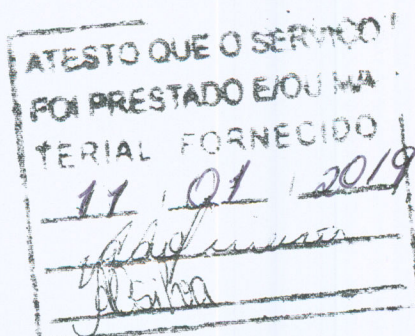 ATESTO QUE O SERVIÇO
FOI PRESTADO E/OU MA
TERIAL FORNECIDO
11 / 01 / 2019